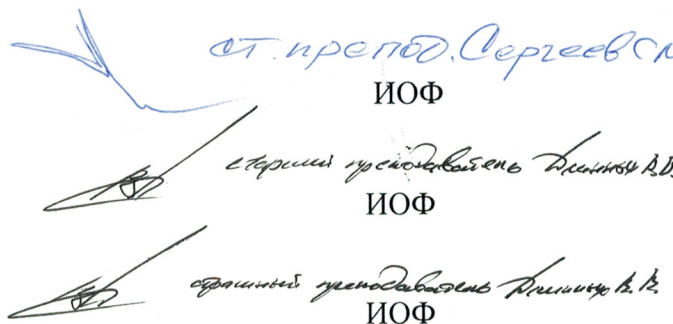 ст. препод. Сергеев С
ИОФ
старший преподаватель Длинных В.В.
ИОФ
страшный преподаватель Длинных В. В.
ИОФ